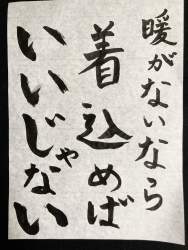 暖がないなら
着込めば
いいじゃない